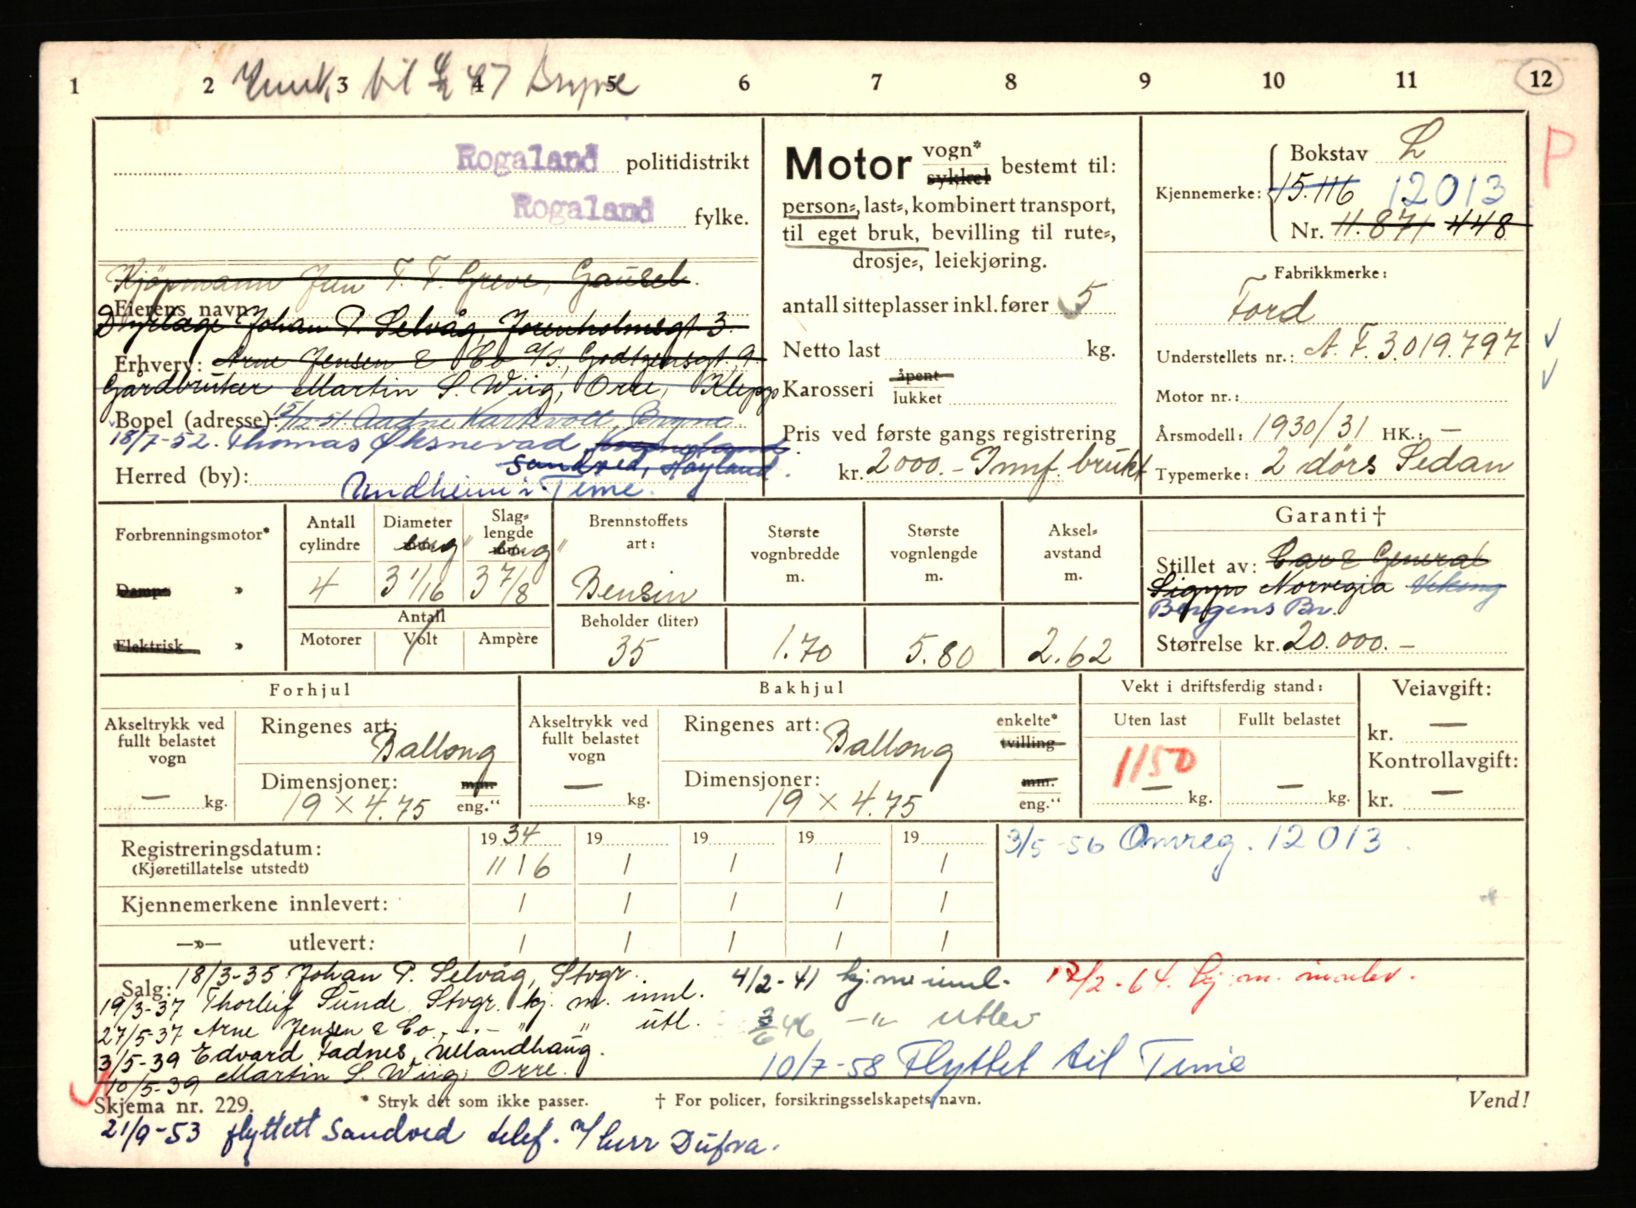 1 2 3 4 5 6 7 8 9 10 11 12
til 47 Bryne
P
Rogaland politidistrikt
Rogaland fylke.
Kjöpmann Jan F. F. Greve, Gausel.
Eierens navn:
Dyrlæge Johan P. Selvåg, Jorenholmsgt. 3.
Erhverv: Arne Jensen & Co a/s, Godtzensgt. 9.
Gårdbruker Martin S. Wiig, Orre, Klepp
Bopel (adresse): 5/12-51. Audne Karkvoll, Bryne
18/7-52. Thomas Øksnevad,
Sandved, Høyland.
Herred (by): Undheim i Time.
Motor vogn* sykkel bestemt til:
person=, last=, kombinert transport,
til eget bruk, bevilling til rute=,
drosje=, leiekjøring.
antall sitteplasser inkl. fører 5
Netto last kg.
Karosseri åpent lukket
Pris ved første gangs registrering
kr. 2000.- Innf. brukt
Kjennemerke: Bokstav L
15.116 12013
Nr. 11.871 448
Fabrikkmerke:
Ford
Understellets nr.: A F. 3.019.797
Motor nr.:
Årsmodell: 1930/31 HK.: —
Typemerke: 2 dörs Sedan
Forbrenningsmotor*
Damp= »
Elektrisk »
Antall cylindre 4
Diameter eng" 3 1/16
Slag= lengde eng" 3 7/8
Antall
Motorer Volt Ampère
Brennstoffets art:
Bensin
Beholder (liter)
35
Største vognbredde m.
1.70
Største vognlengde m.
5.80
Aksel= avstand m.
2.62
Garanti †
Stillet av: Car & General
Sigyn Norvegia Viking
Bergens Br.
Størrelse kr. 20.000.-
Forhjul
Akseltrykk ved fullt belastet vogn
— kg.
Ringenes art: Ballong
Dimensjoner: mm.
19 × 4.75 eng."
Bakhjul
Akseltrykk ved fullt belastet vogn
— kg.
Ringenes art: Ballong enkelte* tvilling
Dimensjoner: mm.
19 × 4.75 eng."
Vekt i driftsferdig stand:
Uten last Fullt belastet
1150
— kg. — kg.
Veiavgift:
kr. —
Kontrollavgift:
kr. —
Registreringsdatum:
(Kjøretillatelse utstedt)
19 34 19 19 19 19
11 / 6 / / / /
Kjennemerkene innlevert: / / / / /
—»— utlevert: / / / / /
3/5-56 Omreg. 12013.
Salg: 18/3-35 Johan P. Selvåg, Stvgr.
19/3-37 Thorleif Sunde, Stvgr. kj. m. innl.
27/5-37 Arne Jensen & Co, -.- " " utl.
3/5-39 Edvard Tadnes, Ullandhaug.
10/5-39 Martin S. Wiig, Orre.
4/2-41 kj. m. innl.
3/6 46 -"- Utlev
10/7-58 Flyttet til Time
12/2-64. kj. m. innlev.
Skjema nr. 229. * Stryk det som ikke passer. † For policer, forsikringsselskapets navn. Vend!
21/9-53 flyttett Sandved telef. herr Dufva.